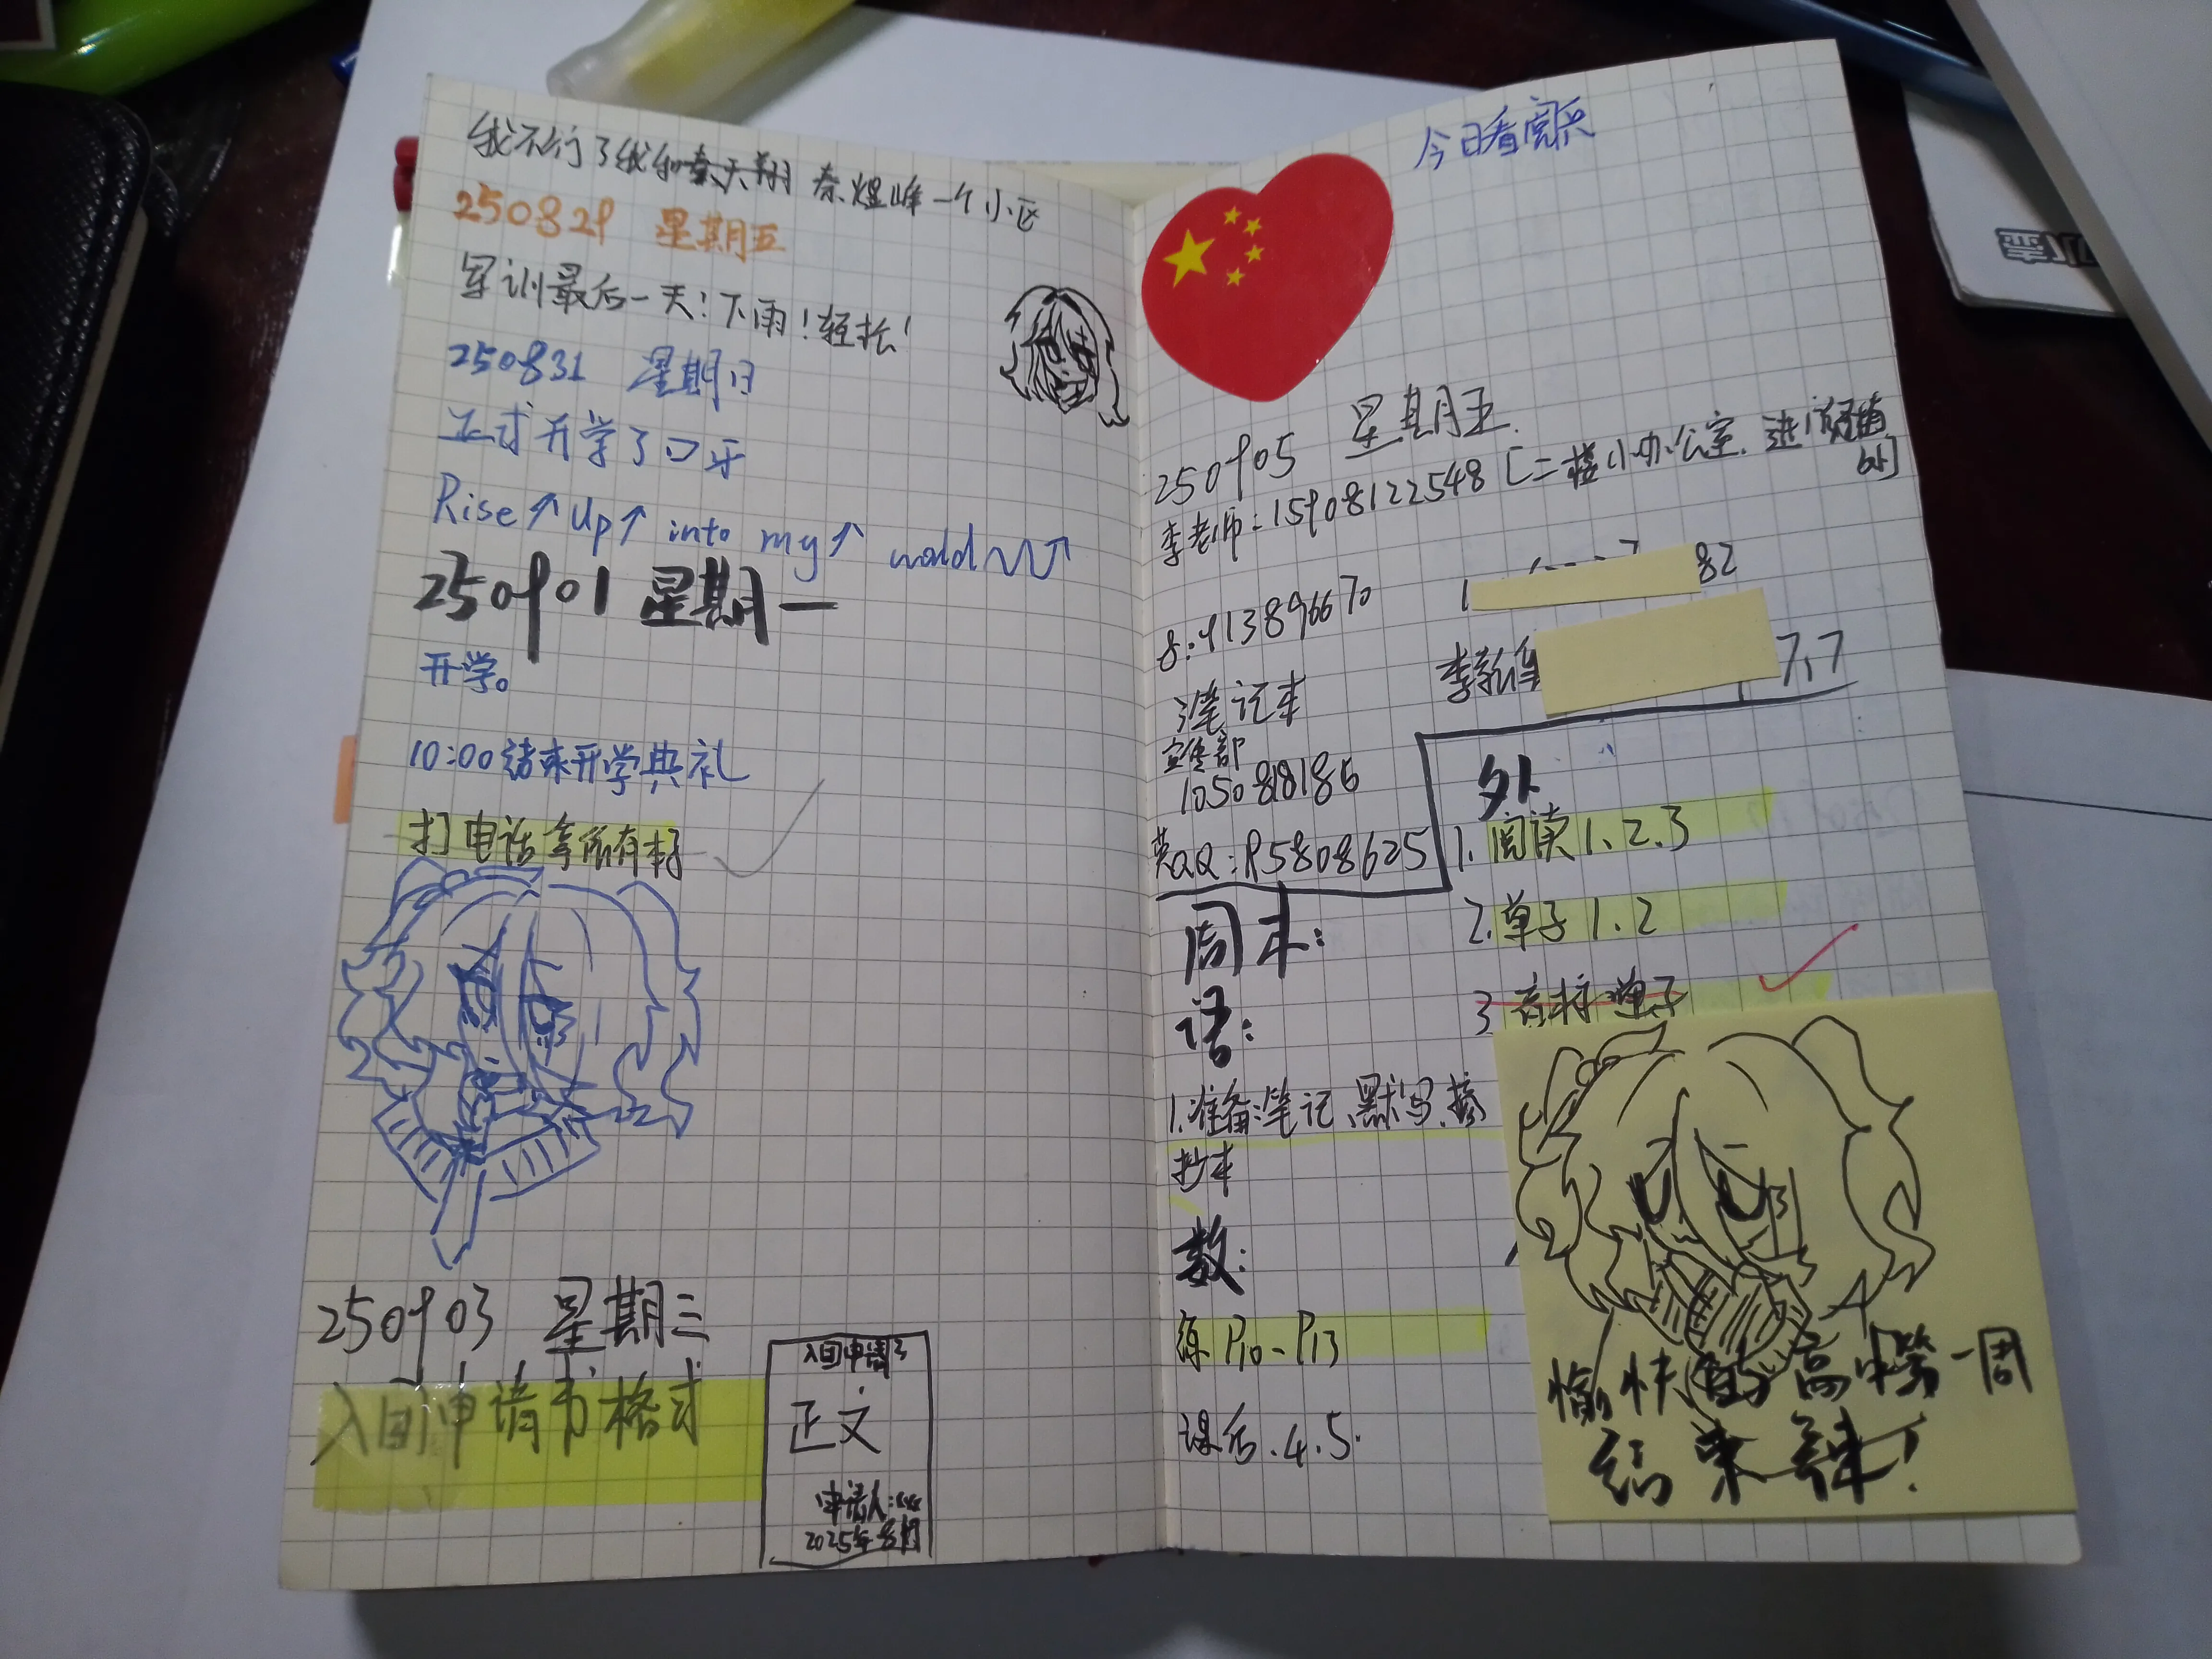 我不行了我和秦天翔 秦煜峰一个小区
250829 星期五
军训最后一天!下雨!轻松!
250831 星期日
正式开学了口牙
Rise↑Up↑ into my↑ world
250901 星期一
开学。
10:00结束开学典礼
打电话拿所有材
250903 星期三
入团申请书格式
入团申请书
正文
申请人:xxx
2025年8月
今日看阅兵
250905 星期五
李老师:15908122548[二楼小办公室.进门
1 82
8:913896670
李 7.7
笔记本
宣传部
1050818186
英QQ:95808625
外
1.阅读1.2.3
2.单子1.2
3 音标单子
周末:
语:
1.准备笔记、默写、摘
抄本
数:
练P10-P13
课后.4.5.
愉快的高中第一周
结束辣!